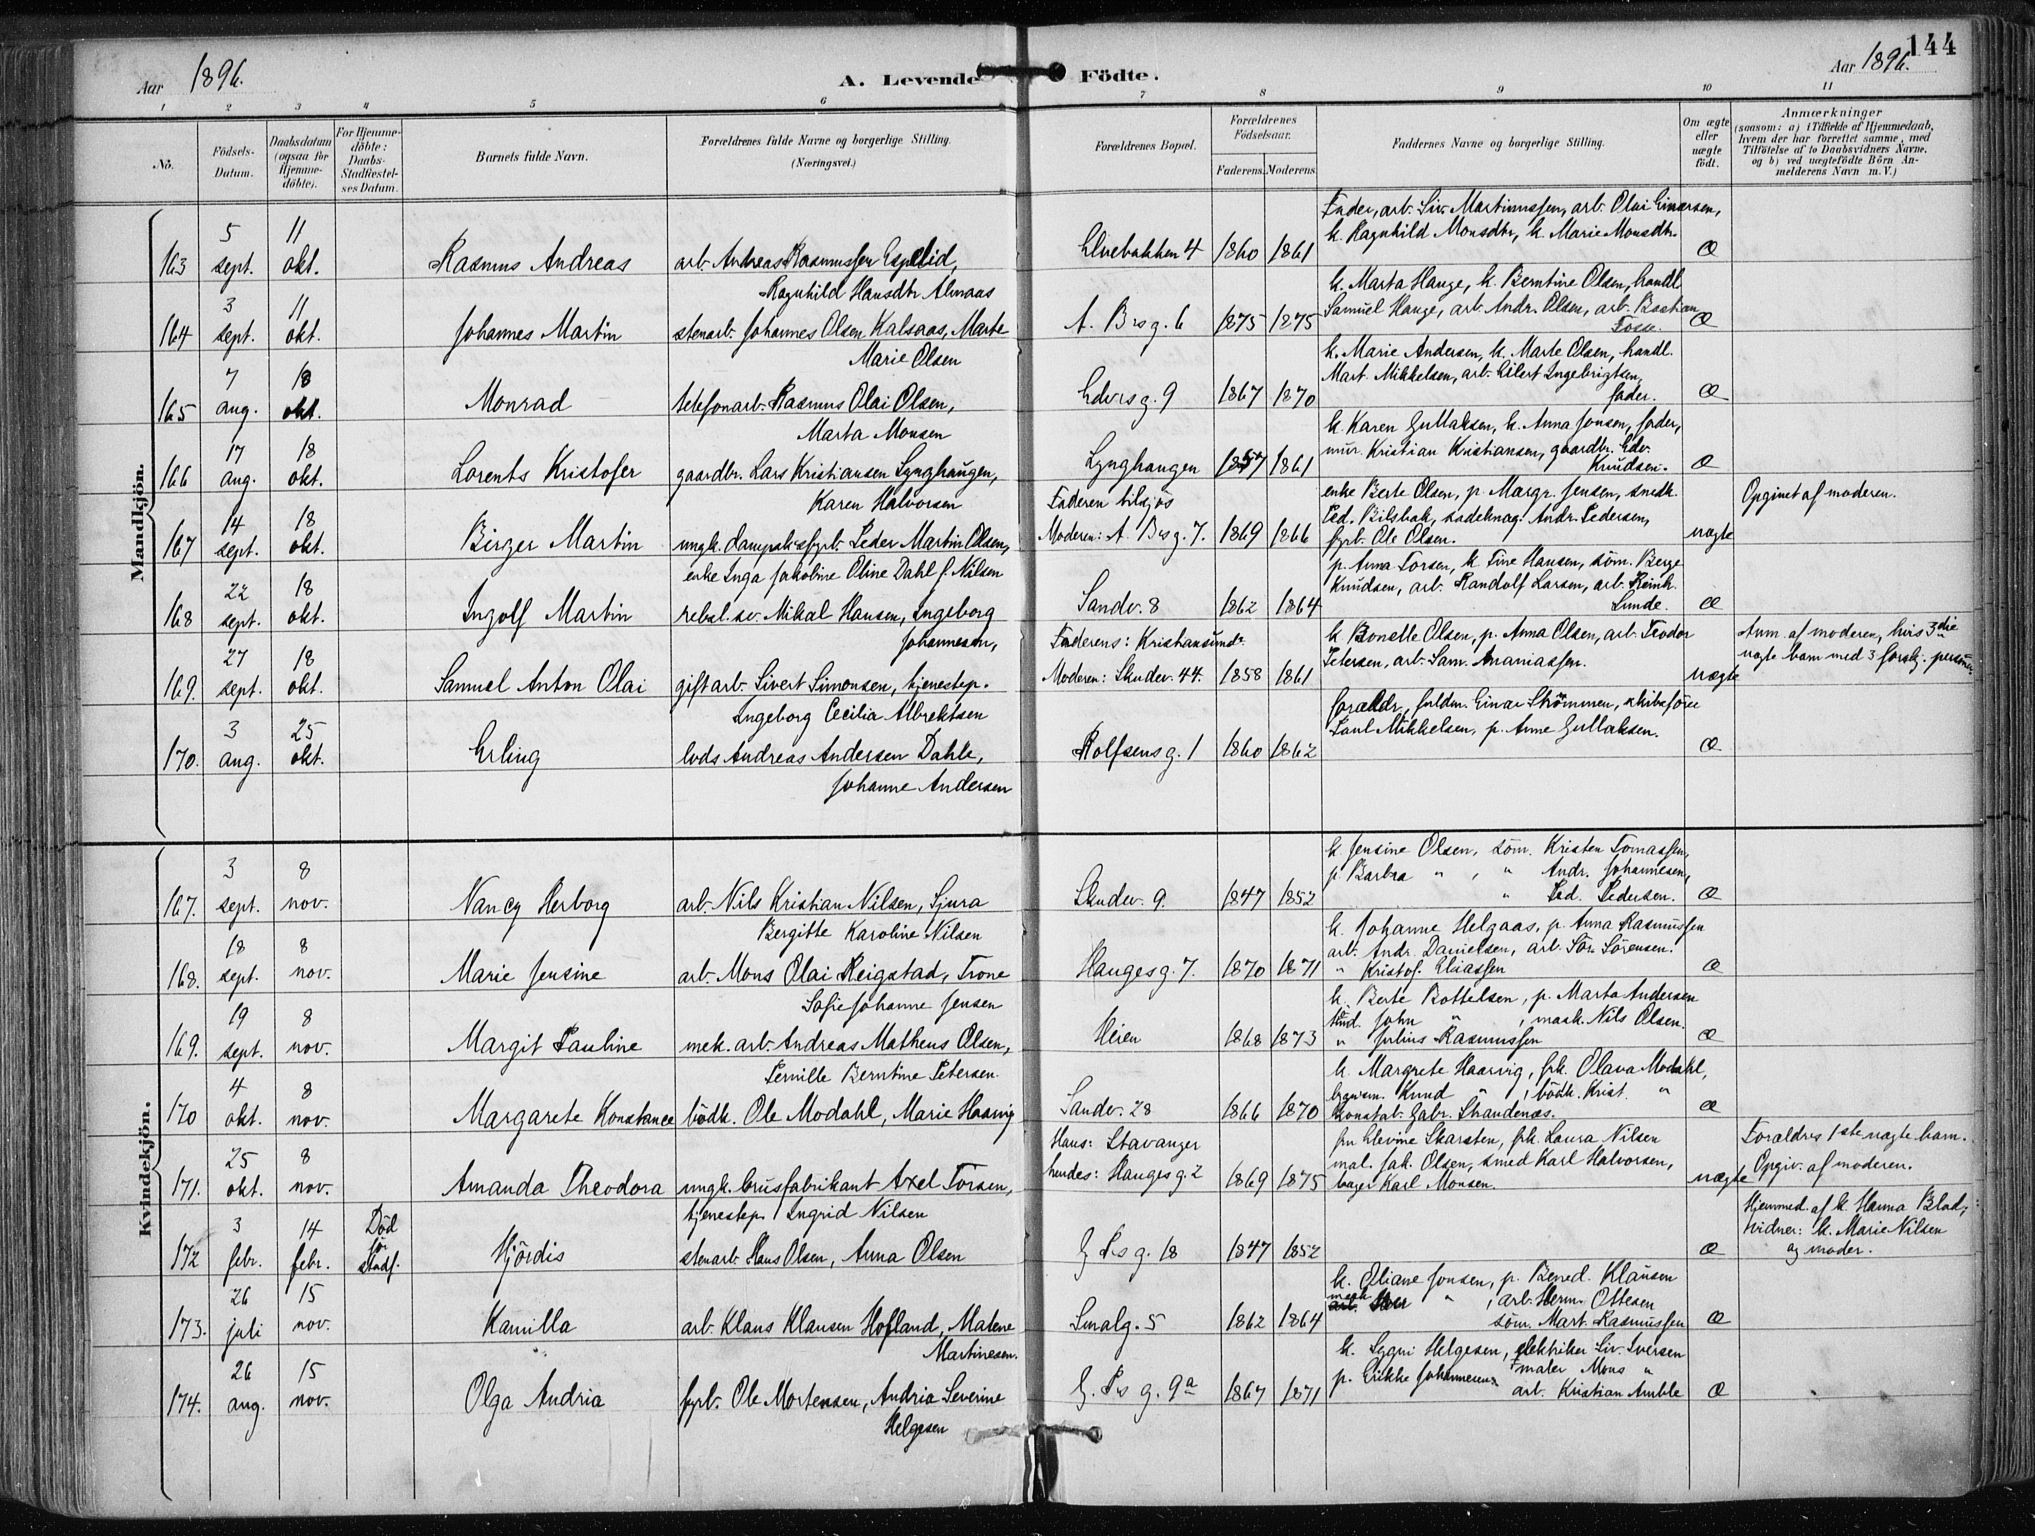 144
Aar 1896.
A. Levende Födte.
Aar 1896.
1 2 3 4 5 6 7 8 9 10 11
Nö.
Födsels-Datum.
Daabsdatum (ogsaa for Hjemme-döbte).
For Hjemme-döbte: Daabs-Stadfæstel-ses Datum.
Barnets fulde Navn.
Forældrenes fulde Navne og borgerlige Stilling.
(Næringsvei.)
Forældrenes Bopæl.
Forældrenes Födselsaar.
Faderens. Moderens.
Faddernes Navne og borgerlige Stilling.
Om ægte eller uægte födt.
Anmærkninger
(saasom: a) i Tilfælde af Hjemmedaab,
hvem der har forrettet samme, med
Tilföielse af to Daabsvidners Navne,
og b) ved uægtefödte Börn An-
melderens Navn m. V.)
Mandkjön.
163 5 sept. 11 okt. Rasmus Andreas arb. Andreas Rasmussen Espelid,
Ragnhild Hansdtr Almaas
Elvebakken 4 1860 1861
Fader, arb. Siv. Martinussen, arb. Olai Einarsen,
k. Ragnhild Monsdtr, k. Marie Monsdtr. Æ
164 3 sept. 11 okt. Johannes Martin stenarb. Johannes Olsen Kalsaas, Marte
Marie Olsen
A. Brs g. 6 1875 1875
k. Marta Hauge, k. Berntine Olsen, handl
Samuel Hauge, arb. Andr. Olsen, arb. Bastian
Foss. Æ
165 7 aug. 18 okt. Monrad telefonarb. Rasmus Olai Olsen,
Marta Monsen
Edvrs g. 9 1867 1870
k. Marie Andersen, k. Marte Olsen, handl.
Mart. Mikkelsen, arb. Eilert Ingebrigtsen,
fader. Æ
166 17 aug. 18 okt. Lorents Kristofer gaardbr. Lars Kristiansen Lynghaugen,
Karen Halvorsen
Lynghaugen 1857 1861
k. Karen Gullaksen, k. Anna Jonsen, fader,
mur. Kristian Kristiansen, gaardbr. Edv.
Knudsen. Æ
167 14 sept. 18 okt. Birger Martin ungk. dampskfyrb. Peder Martin Olsen,
enke Inga Jakobine Oline Dahl f. Nilsen
Faderen tilsjøs
Moderen: A. Brs g. 7. 1869 1866
enke Berte Olsen, p. Margr. Jensen, snedk.
Ped. Bilsbak, sadelmag. Andr. Pedersen,
fyrb. Ole Olsen. uægte
Opgivet af moderen.
168 22 sept. 18 okt. Ingolf Martin rebsl.sv. Mikal Hansen, Ingeborg
Johannesen,
Sandv. 8 1862 1864
p. Anna Torsen, k. Tine Hansen, söm. Berge
Knudsen, arb. Randolf Larsen, arb. Reinh.
Lunde. Æ
169. 27 sept. 18 okt. Samuel Anton Olai gift arb. Sivert Simonsen, tjenestep.
Ingeborg Cecilia Albrektsen
Faderens: Kristiansund
Moderen: Skudev. 44. 1858 1861
k Bonette Olsen, p. Anna Olsen, arb. Teodor
Petersen, arb. Sam. Ananiassen. uægte
Anm. af moderen, hvis 3die
uægte barn med 3 forskj. personer
170. 3 aug. 25 okt. Erling lods Andreas Andersen Dahle,
Johanne Andersen
Rolfsens g. 1 1860 1862
forældr., fuldm. Einar Strömmen, skibsförer
Paul Mikkelsen, p. Anne Gullaksen. Æ
Kvindekjön.
167. 3 sept. 8 nov. Nancy Herborg arb. Nils Kristian Nilsen, Sjura
Bergitte Karoline Nilsen
Skudev. 9. 1847 1852
k. Jensine Olsen, söm. Kristen Tomassen,
p. Barbra " , " Andr. Johannesen,
" Ped. Pedersen. Æ
168. 18 sept. 8 nov. Marie Jensine arb. Mons Olai Reigstad, Trone
Sofie Johanne Jensen
Hauges g. 7. 1870 1871
k. Johanne Helgaas, p. Anna Rasmussen
arb. Andr. Danielsen, arb. Sör. Sörensen.
" Kristof. Eliassen Æ
169. 19 sept. 8 nov. Margit Pauline mek. arb. Andreas Matheus Olsen,
Pernille Berntine Petersen.
Heien 1868 1873
k. Berte Bottelsen, p. Marta Andersen
John " , mask. Nils Olsen.
" Julius Rasmussen Æ
170 4 okt. 8 nov. Margarete Konstance bödk. Ole Modahl, Marie Haavig
Sandv. 28 1866 1870
k. Margrete Haavig, frk. Olava Modahl,
Knud " , bödk. Krist. "
Konstab. Gabr. Strandenæs. Æ
171. 25 okt. 8 nov. Amanda Theodora ungk. brusfabrikant Axel Torsen,
tjenestep. Ingrid Nilsen
Hans: Stavanger
hendes: Hauges g. 2 1869 1875
fru Elevine Skarsten, frk. Laura Nilsen
mal. Jak. Olsen, smed Karl Halvorsen,
bager Karl Monsen. uægte
Forældres 1ste uægte barn.
Opgiv. af moderen.
172 3 febr. 14 febr. Död för stadf. Hjördis stenarb. Hans Olsen, Anna Olsen
G Prs g. 18 1847 1852 Æ
Hjemmed. af k. Hanna Blad,
vidner: k. Marie Nilsen
og moder.
173. 26 juli 15 nov. Kamilla arb. Klaus Klausen Hofland, Malene
Martinesen.
Smalg. 5 1862 1864
k. Eliane Jonsen, p. Bened. Klausen
" , arb. Herm. Ottesen
söm. Mart. Rasmussen Æ
174. 26 aug. 15 nov. Olga Andria fyrb. Ole Mortensen, Andria Severine
Helgesen
G. Prs g. 9a 1867 1871
k. Sygni Helgesen, elektriker Siv. Iversen
p. Erikke Johannesen, maler Mons "
arb. Kristian Amble Æ